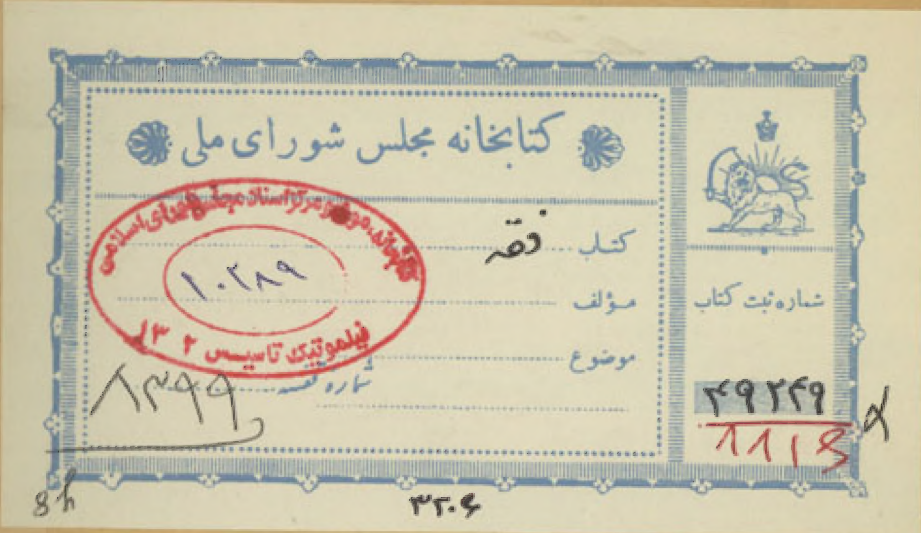 کتابخانه مجلس شورای ملی
کتاب فقه
مؤلف
موضوع
شماره قفسه
۸۳۹۹
شماره ثبت کتاب
۴۹۲۴۹
کتابخانه، موزه و مرکز اسناد مجلس شورای اسلامی
۱۰۲۸۹
فیلموتیک تاسیس ۱۳۰۲
۳۲۰۶